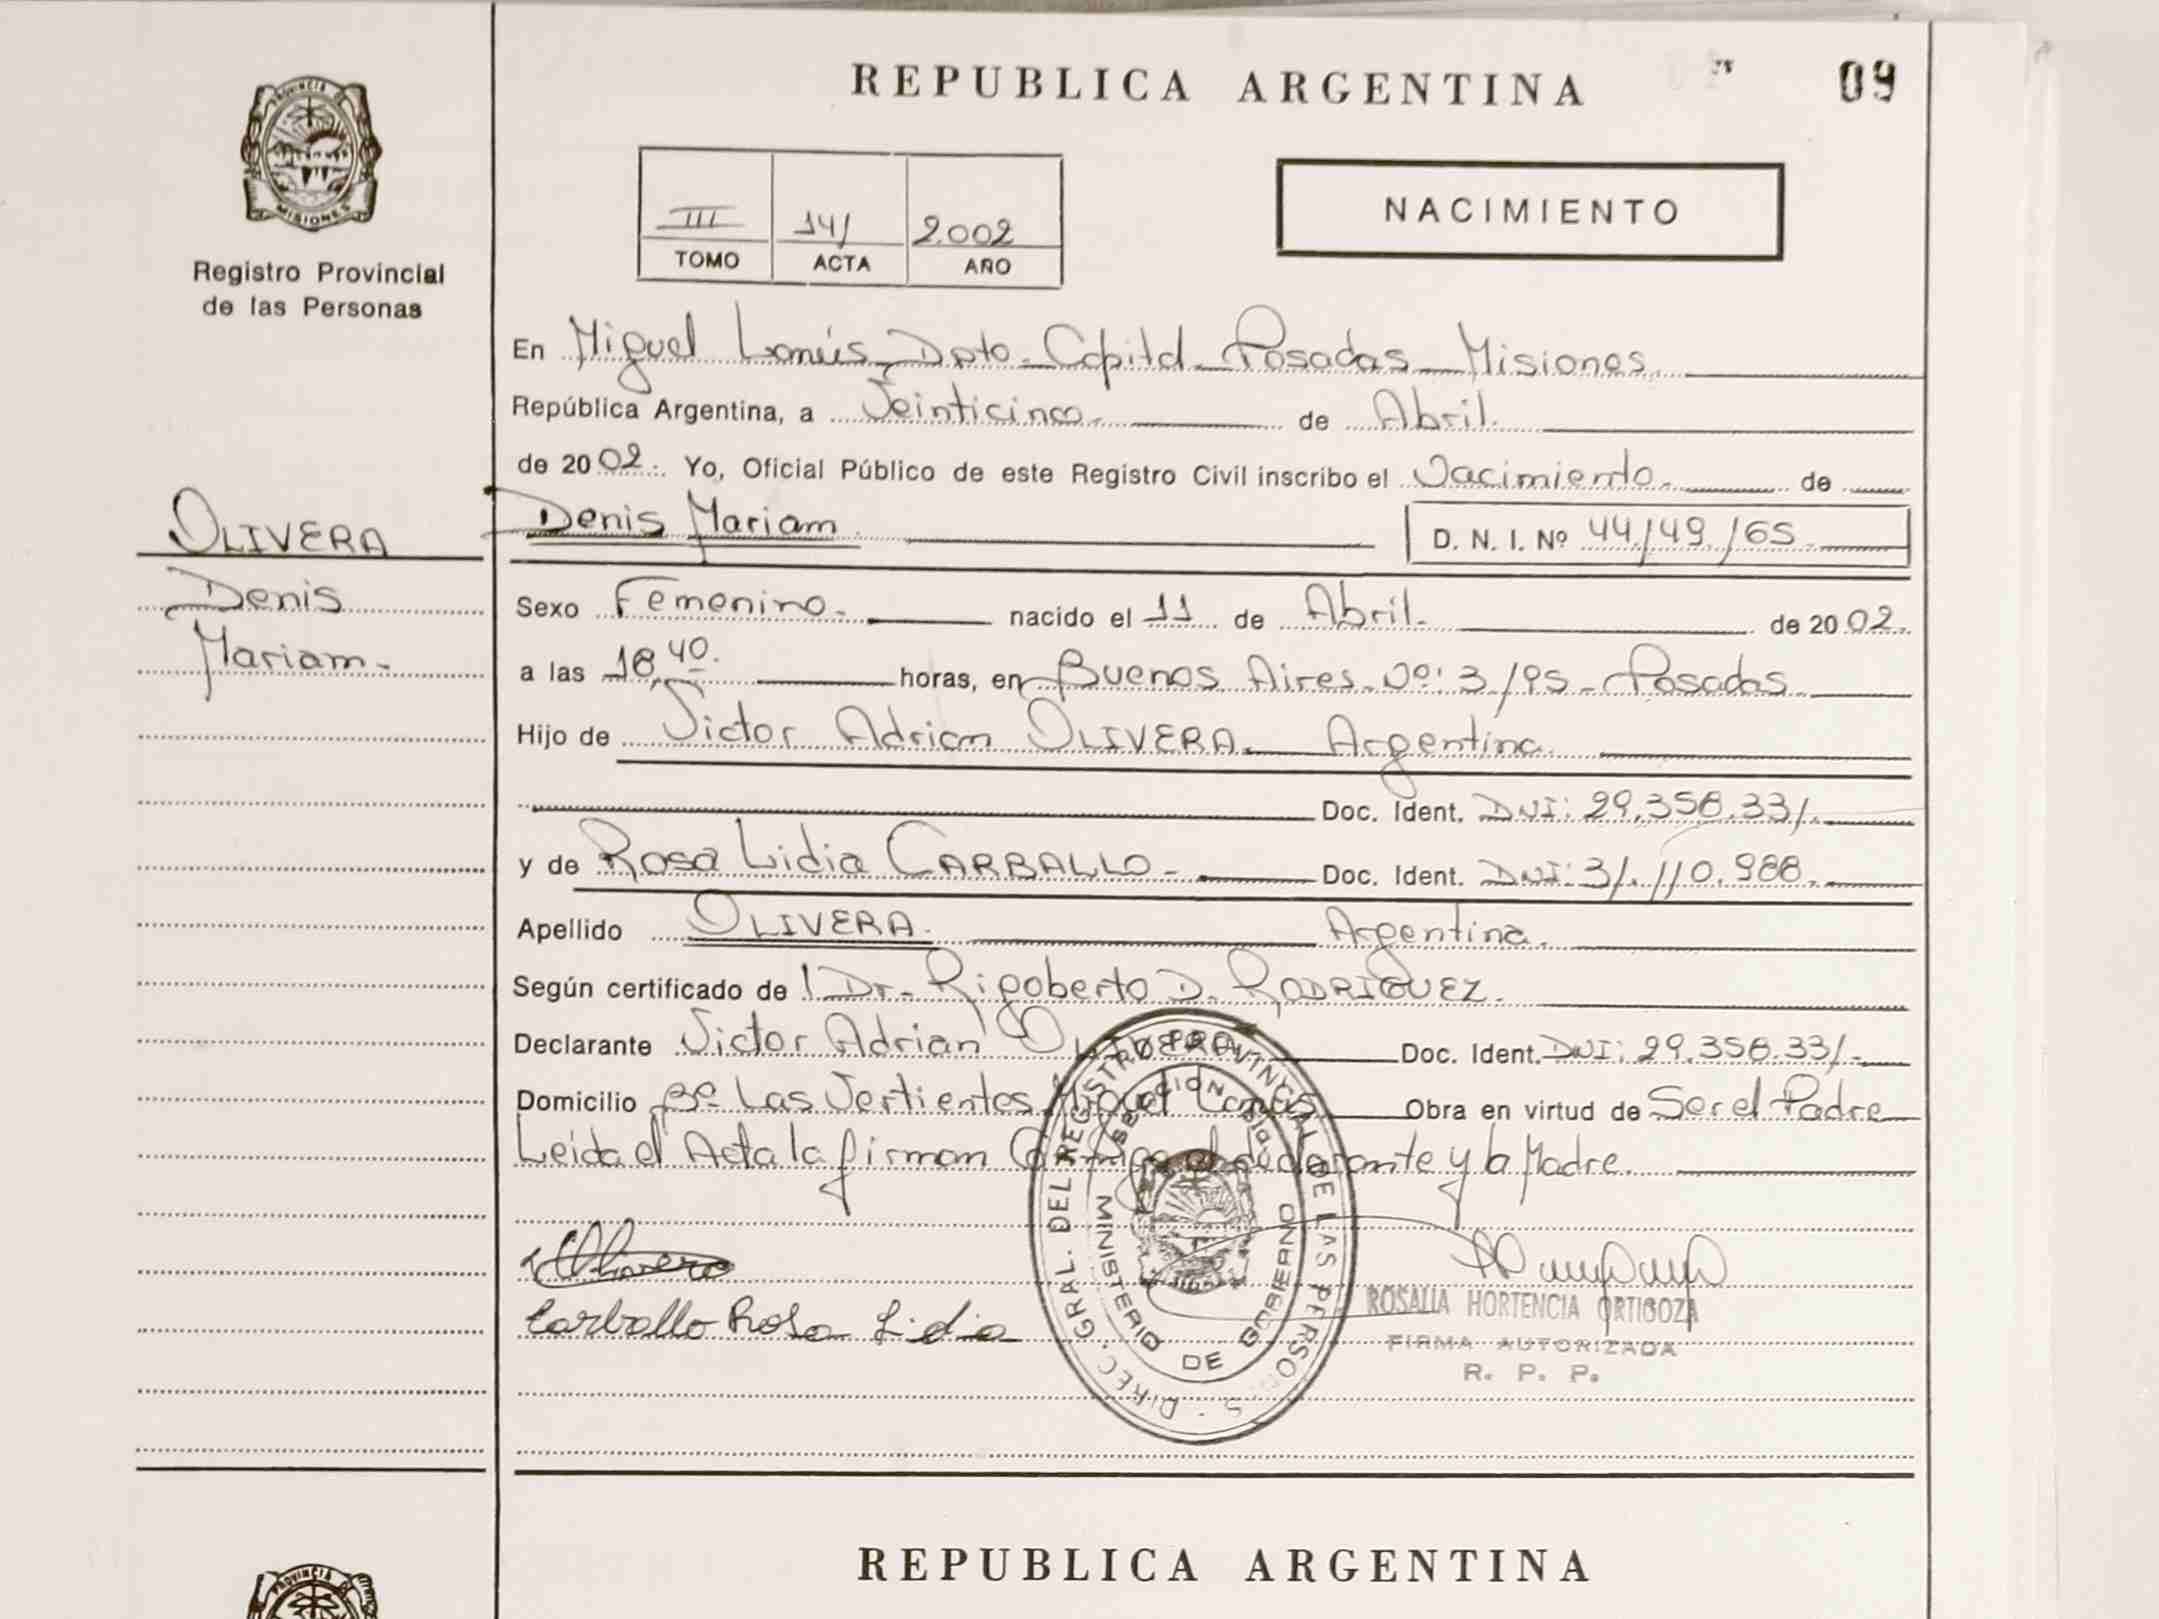 REPUBLICA ARGENTINA
09
PROVINCIA DE
MISIONES
Registro Provincial
de las Personas
III 141 2.002
TOMO ACTA AÑO
NACIMIENTO
En Miguel Lanús, Dpto. Capital Posadas Misiones.
República Argentina, a Veinticinco. de Abril.
de 2002. Yo, Oficial Público de este Registro Civil inscribo el Nacimiento. de
OLIVERA
Denis
Mariam.
Denis Mariam. D. N. I. Nº 44.149.165.
Sexo Femenino. nacido el 11 de Abril. de 2002.
a las 18,40. horas, en Buenos Aires. Nº: 3195 - Posadas
Hijo de Victor Adrian OLIVERA. Argentina.
Doc. Ident. DNI: 29.358.331.
y de Rosa Lidia CARBALLO. Doc. Ident. DNI: 31.110.988.
Apellido OLIVERA. Argentina.
Según certificado de l Dr. Rigoberto D. RODRIGUEZ.
Declarante Victor Adrian OLIVERA. Doc. Ident. DNI: 29.358.331.
Domicilio Bº Las Vertientes Miguel Lanús Obra en virtud de Ser el Padre
Leída el Acta la firman Conmigo el declarante y la Madre.
Carballo Rosa Lidia
DIREC. GRAL. DEL REGISTRO PROVINCIAL DE LAS PERSONAS
MINISTERIO DE GOBIERNO
ROSALIA HORTENCIA ORTIGOZA
FIRMA AUTORIZADA
R. P. P.
REPUBLICA ARGENTINA
PROVINCIA DE